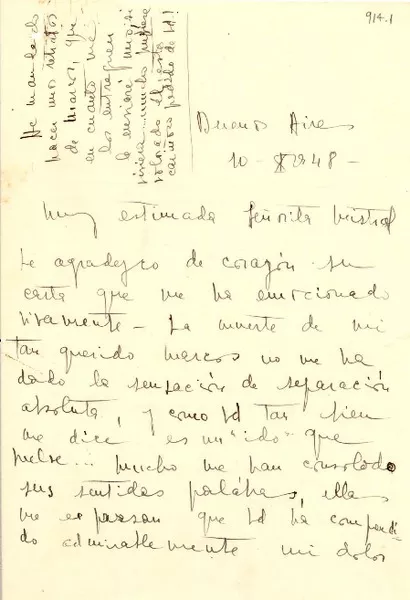 914.1
He mandado
hacer unos retratos
de Marcos, que
en cuanto me
los entreguen
le enviaré uno, si
viera mucho
este
cariñoso pedido de Ud!
Buenos Aires
10 - 1948 -
Muy estimada Señorita Mistral
Le agradezco de corazón su
carta que me ha emocionado
vivamente - La muerte de mi
tan querido Marcos no me ha
dado la sensación de separación
absoluta, y como Ud tan bien
me dice es un "ido" que
vuelve... Mucho me han consolado
sus sentidas palabras, ellas
me expresan que Ud ha compendi-
do admirablemente mi dolor